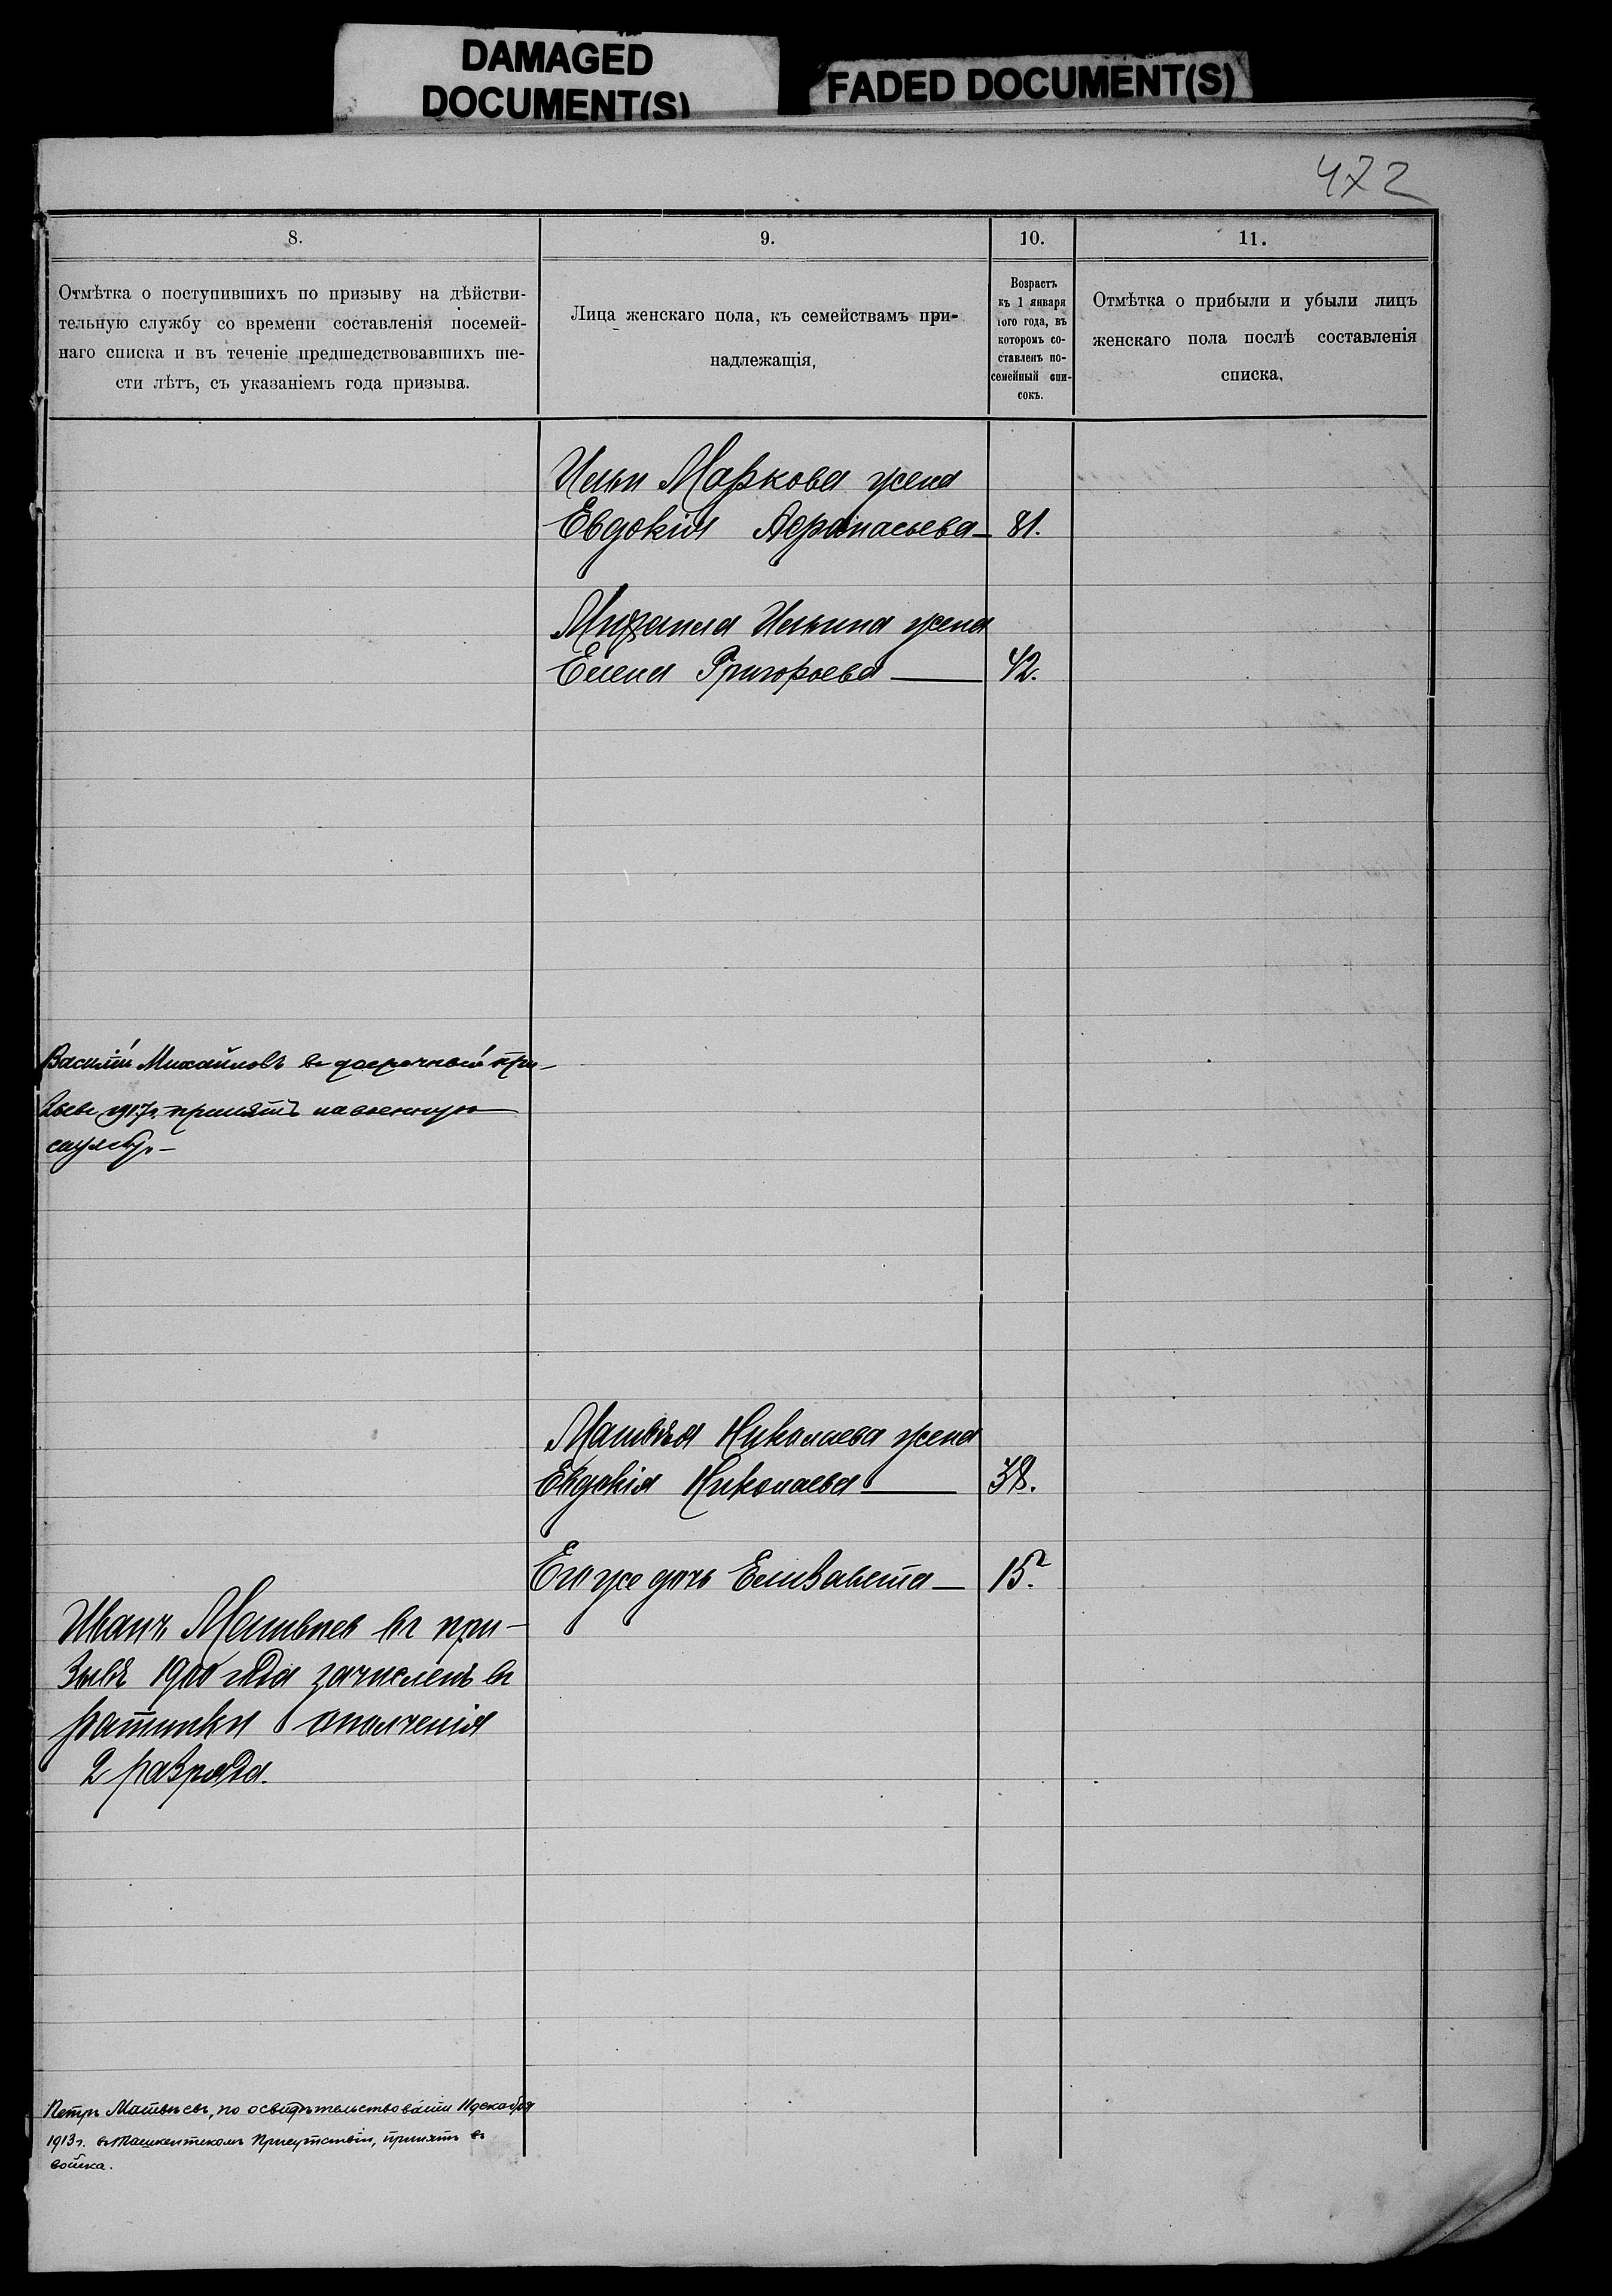 DAMAGED
DOCUMENT(S)
FADED DOCUMENT(S)
472
8.
Отмѣтка о поступившихъ по призыву на дѣйстви-
тельную службу со времени составленія посемей-
наго списка и въ теченіе предшедствовавшихъ ше-
сти лѣтъ, съ указаніемъ года призыва.
9.
Лица женскаго пола, къ семействамъ при-
надлежащія,
10.
Возрастъ
къ 1 января
того года, въ
которомъ со-
ставленъ по-
семейный спи-
сокъ.
11.
Отмѣтка о прибыли и убыли лицъ
женскаго пола послѣ составленія
списка,
Ильи Маркова жена
Евдокія Афанасьева — 81.
Михаила Ильина жена
Елена Григорьева — 42.
Василій Михайловъ въ досрочный при-
зывъ 1917г. принятъ на военную
службу. —
Матвѣя Николаева жена
Евдокія Николаева — 38.
Его же дочь Елизавета — 15.
Иванъ Матвѣев въ при-
зывѣ 1900 года зачисленъ въ
ратники ополченія
2 разряда.
Петръ Матвѣевъ, по освидѣтельствованіи 11 декабря
1913г. въ Ташкентскомъ Присутствіи, принятъ въ
войска.